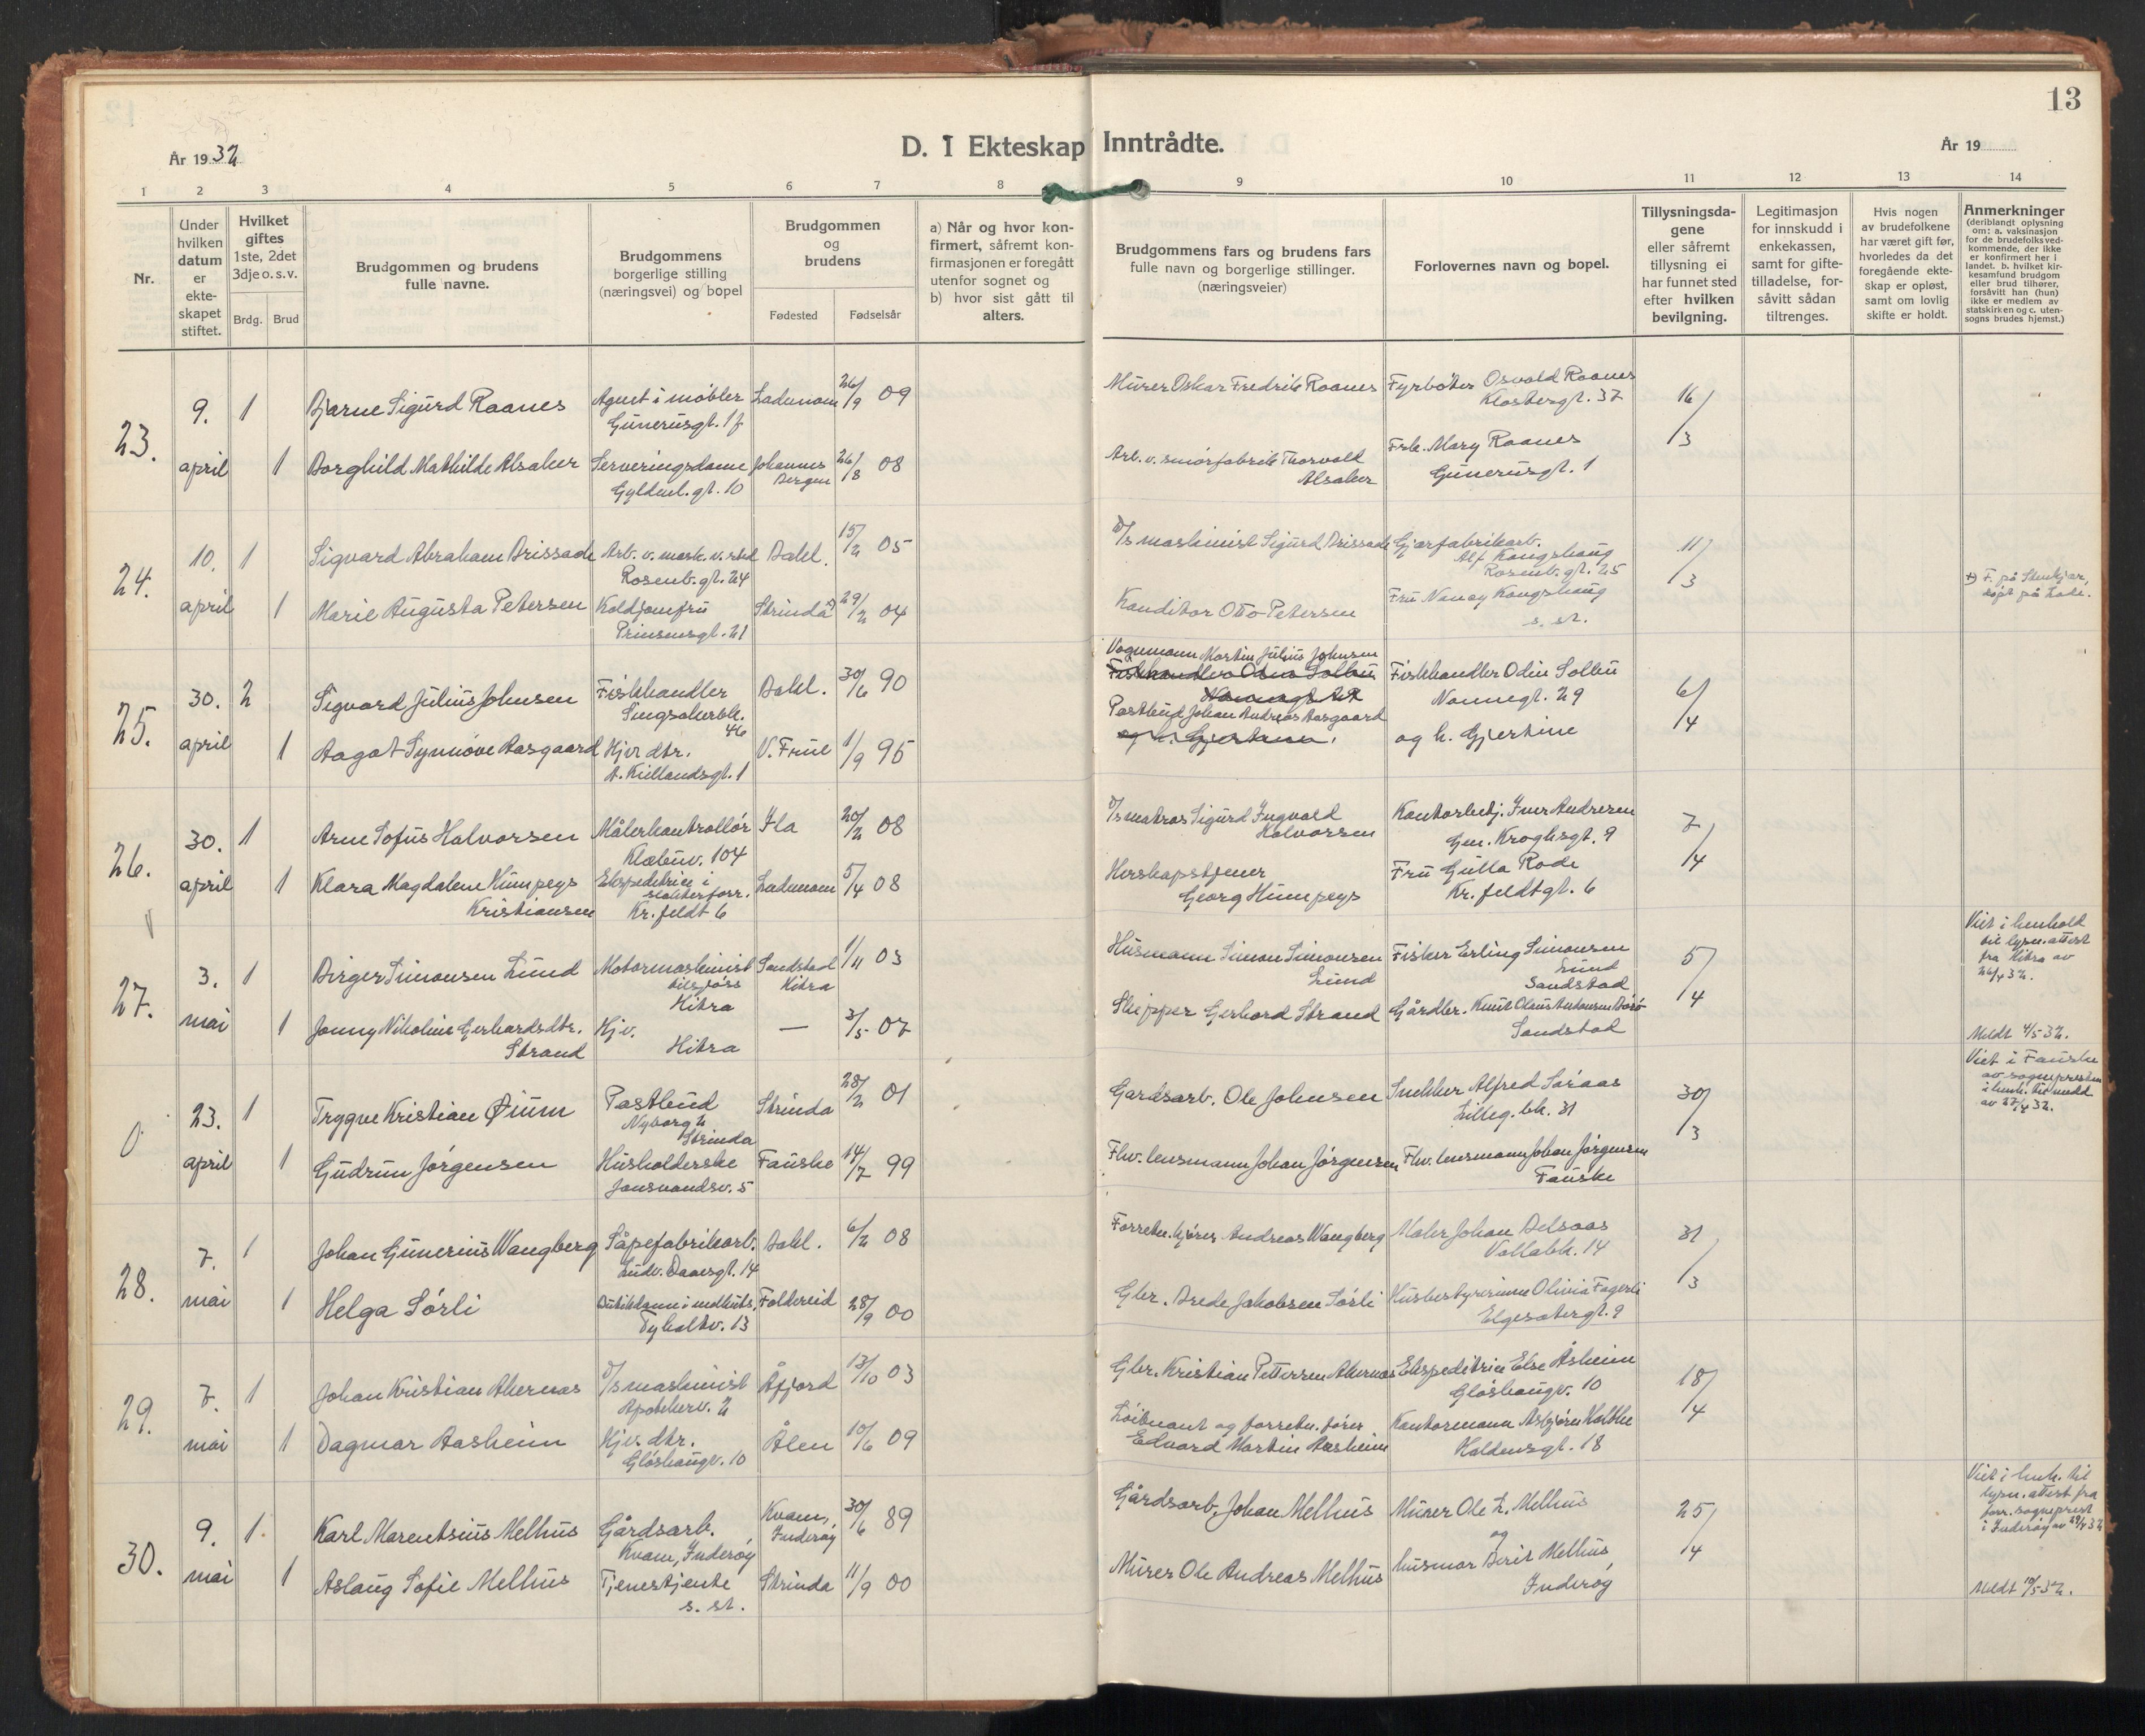 13
År 1932
D. I Ekteskap Inntrådte.
År 19
1 2 3 4 5 6 7 8 9 10 11 12 13 14
Nr.
Under hvilken datum er ekteskapet stiftet.
Hvilket giftes 1ste, 2det 3dje o. s. v.
Brdg. Brud
Brudgommen og brudens
fulle navne.
Brudgommens
borgerlige stilling
(næringsvei) og bopel
Brudgommen
og
brudens
Fødested Fødselsår
a) Når og hvor kon-
firmert, såfremt kon-
firmasjonen er foregått
utenfor sognet og
b) hvor sist gått til
alters.
Brudgommens fars og brudens fars
fulle navn og borgerlige stillinger.
(næringsveier)
Forlovernes navn og bopel.
Tillysningsda-
gene
eller såfremt
tillysning ei
har funnet sted
efter hvilken
bevilgning.
Legitimasjon
for innskudd i
enkekassen,
samt for gifte-
tilladelse, for-
såvitt sådan
tiltrenges.
Hvis nogen
av brudefolkene
har været gift før,
hvorledes da det
foregående ekte-
skap er opløst,
samt om lovlig
skifte er holdt.
Anmerkninger
(deriblandt oplysning
om: a. vaksinasjon
for de brudefolks ved-
kommende, der ikke
er konfirmert her i
landet. b. hvilket kir-
kesamfund brudgom
eller brud tilhører,
forsåvitt han (hun)
ikke er medlem av
statskirken og c. uten-
sogns brudes hjemst.)
23.
9. april
1 Bjarne Sigurd Raanes
Agent i møbler
Gunerusgt. 1f
Lademoen 26/9 09
Murer Oskar Fredrik Raanes
Fyrbøter Osvald Raanes
Klostergt. 37
16/3
1 Borghild Mathilde Alsaker
Serveringsdame
Gyldenl. gt. 10
Johannes
Bergen
26/8 08
Arb. v. smørfabrik Thorvald
Alsaker
Frk. Mary Raanes
Gunerusgt. 1
24.
10. april
1 Sigvard Abraham Brissach
Arb. v. mek. v.sted
Rosenb. gt. 24
Bakl. 15/2 05
D/s maskinist Sigurd
Gjærfabrikarb.
Alf Kongshaug
Rosenb. gt. 25
11/3
1 Marie Augusta Petersen
Koldjomfru
Prinsensgt. 21
Strinda x) 29/2 04
Konditor Otto Petersen
Fru Nancy Kongshaug
s. st.
x) F. på Stenkjær,
døpt på Lade.
25.
30. april
2 Sigvard Julius Johnsen
Fiskhandler
Singsakerbk.
46
Bakl. 30/6 90
Vognmann Martin Julius Johnsen
Fiskhandler Odin Solbu
Nonnegt. 29
Fiskhandler Odin Solbu
Nonnegt. 29
6/4
1 Aagot Synnøve Aasgaard
Hjv. dtr.
A. Kiellandsgt. 1
V. Frue 1/9 95
Postbud Johan Andreas Aasgaard
og h. Gjertine.
og h. Gjertine
26.
30. april
1 Arne Sofus Halvorsen
Målerkontrollør
Klæbuv. 104
Ila 20/2 08
D/s matros Sigurd Ingvald
Halvorsen
Kontorbetj. Iver Andresen
Gen. Kroghsgt. 9
7/4
1 Klara Magdalene Humpeys
Kristiansen
Ekspeditrice i
slakterforr.
Kr. feldt 6
Lademoen 5/4 08
Herskapstjener
Georg Humpeys
Fru Gulla Rode
Kr. feldtgt. 6
27.
3. mai
1 Birger Simonsen Lund
Motormaskinist
tilsjøss
Hitra
Sandstad
Hitra
1/11 03
Husmann Simon Simonsen
Lund
Fisker Erling Simonsen
Lund
Sandstad
5/4
Viet i henhold
til lysn. attest
fra Hitra av
26/4 32.
1 Jonny Nikoline Gerhardsdtr.
Strand
Hjv.
Hitra
— 3/5 07
Skipper Gerhard Strand
Gårdbr. Knut Olaus Antonsen
Sandstad
Meldt 4/5 32.
0
23. april
1 Trygve Kristian Øium
Postbud
Nyborg 2
Strinda
Strinda 28/2 01
Gardsarb. Ole Johnsen
Snekker Alfred Søraas
Lilleg. bk. 31
30/3
Viet i Fauske
av sognepresten
i henh. til medd
av 27/4 32.
1 Gudrun Jørgensen
Husholderske
Jonsvandsv. 5
Fauske 14/7 99
Fhv. lensmann Johan Jørgensen
Fhv. lensmann Johan Jørgensen
Fauske
28.
7. mai
1 Johan Gunerius Wangberg
Såpefabrikarb.
Ludv. Daaesgt. 14
Bakl. 6/2 08
Forretn. kjører Andreas Wangberg
Maler Johan Belsaas
Vollabk. 14
31/3
1 Helga Sørli
Butikkdame i melkuts.
Tyholtv. 13
Foldereid 28/9 00
Gbr. Brede Jakobsen Sørli
Husbestyrerinne Olivia Fagerli
Elgesetergt. 9
29.
7. mai
1 Johan Kristian Akernes
D/s maskinist
Apotekerv. 2
Åfjord 13/10 03
Gbr. Kristian Pettersen Akernes
Ekspeditrice Else Åsheim
Gløshaugv. 10
18/4
1 Dagmar Aasheim
Hjv. dtr.
Gløshaugv. 10
Ålen 10/6 09
Løitnant og forretn. fører
Edvard Martin Aasheim
Kontormann Asbjørn Holthe
Haldensgt. 18
30.
9. mai
1 Karl Marentsius Melhus
Gårdsarb.
Kvam, Inderøy
Kvam,
Inderøy
30/6 89
Gårdsarb. Johan Melhus
Murer Ole L. Melhus
og
25/4
Viet i henh. til
lysn. attest fra
sogneprest
i Inderøy av 29/4 32
1 Aslaug Sofie Melhus
Tjenestjente
s. st.
Strinda 11/9 00
Murer Ole Andreas Melhus
husmor Berit Melhus,
Inderøy
Meldt 10/5 32.